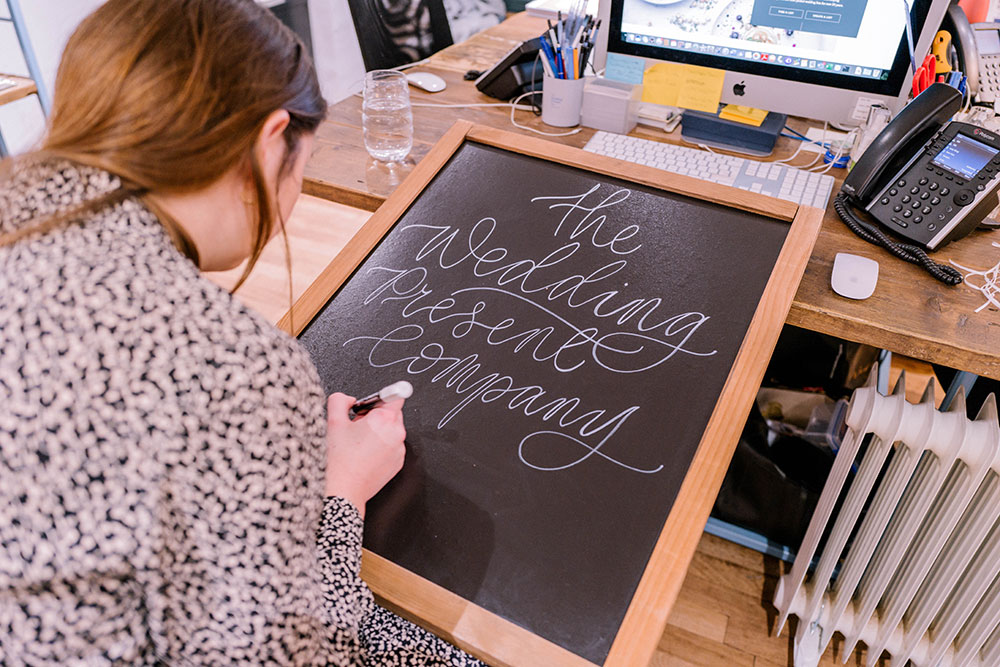 The
Wedding
Present
Company